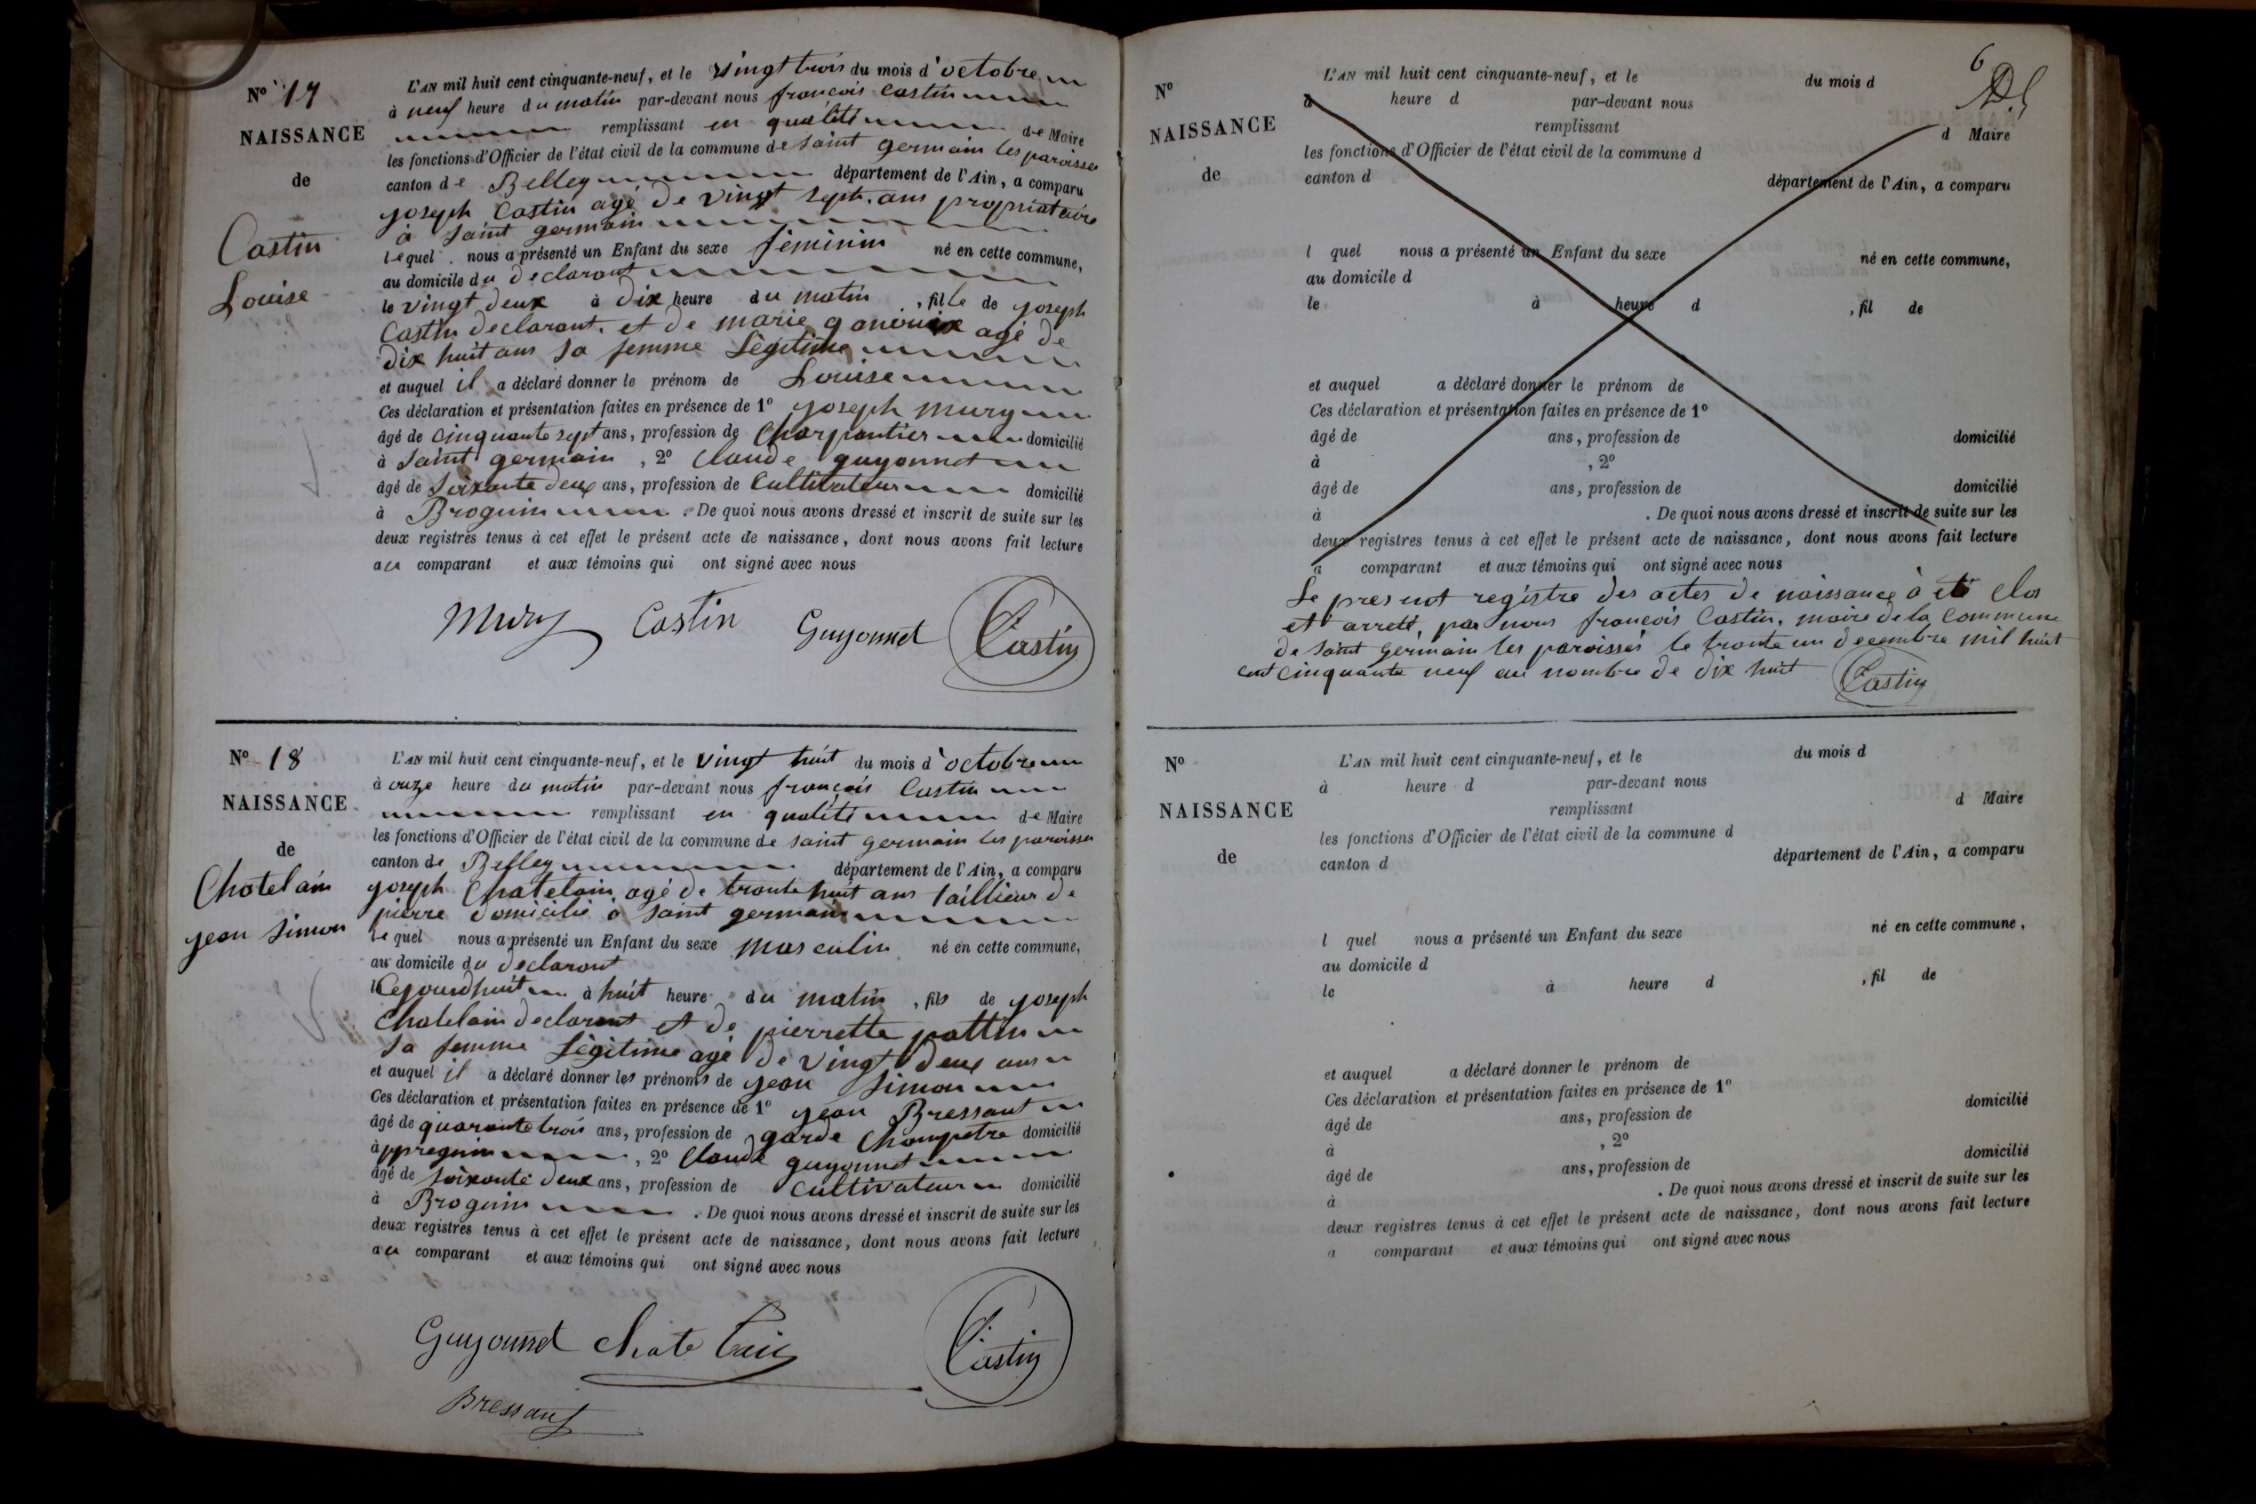 Nº 17
NAISSANCE
de
Castin
Louise
L'AN mil huit cent cinquante-neuf, et le vingt trois du mois d'octobre
à neuf heure du matin par-devant nous francois castin
remplissant en qualité de Maire
les fonctions d'Officier de l'état civil de la commune de saint germain les paroisses
canton de Belley département de l'Ain, a comparu
joseph Castin agé de vingt sept ans propriataire
à saint germain
lequel nous a présenté un Enfant du sexe féminin né en cette commune,
au domicile du declarant
le vingt deux à dix heure du matin, fille de joseph
Castin declarant et de marie agé de
dix huit ans sa femme Légitime
et auquel il a déclaré donner le prénom de Louise
Ces déclaration et présentation faites en présence de 1º joseph mury
âgé de cinquante sept ans, profession de Charpantier domicilié
à saint germain, 2º claude guyonnet
âgé de soixante deux ans, profession de Cultivateur domicilié
à Brognin. De quoi nous avons dressé et inscrit de suite sur les
deux registres tenus à cet effet le présent acte de naissance, dont nous avons fait lecture
au comparant et aux témoins qui ont signé avec nous
Mury Castin Guyonnet Castin
Nº 18
NAISSANCE
de
Chatelain
jean simon
L'AN mil huit cent cinquante-neuf, et le vingt huit du mois d'octobre
à onze heure du matin par-devant nous francois Castin
remplissant en qualité de Maire
les fonctions d'Officier de l'état civil de la commune de saint germain les paroisses
canton de Belley département de l'Ain, a comparu
joseph Chatelain agé de trante huit ans taillieur de
pierre domicilié à saint germain
lequel nous a présenté un Enfant du sexe masculin né en cette commune,
au domicile du declarant
Cejourdhuit à huit heure du matin, fils de joseph
Chatelain declarant et de pierrette pattin
sa femme Légitime agé de vingt deux ans
et auquel il a déclaré donner les prénoms de jean simon
Ces déclaration et présentation faites en présence de 1º jean Bressant
âgé de quarante trois ans, profession de garde Champetre domicilié
à, 2º claude guyonnet
âgé de soixante deux ans, profession de Cultivateur domicilié
à Brognin. De quoi nous avons dressé et inscrit de suite sur les
deux registres tenus à cet effet le présent acte de naissance, dont nous avons fait lecture
au comparant et aux témoins qui ont signé avec nous
Guyonnet Chatelain Castin
Bressant
6
Nº
NAISSANCE
de
L'AN mil huit cent cinquante-neuf, et le du mois d
à heure d par-devant nous
remplissant d Maire
les fonctions d'Officier de l'état civil de la commune d
canton d département de l'Ain, a comparu
l quel nous a présenté un Enfant du sexe né en cette commune,
au domicile d
le à heure d, fil de
et auquel a déclaré donner le prénom de
Ces déclaration et présentation faites en présence de 1º
âgé de ans, profession de domicilié
à, 2º
âgé de ans, profession de domicilié
à. De quoi nous avons dressé et inscrit de suite sur les
deux registres tenus à cet effet le présent acte de naissance, dont nous avons fait lecture
a comparant et aux témoins qui ont signé avec nous
Le present registre des actes de naissance à eté clos
et arreté, par nous francois Castin, maire de la commune
de saint germain les paroisses le trante un decembre mil huit
cent cinquante neuf au nombre de dix huit Castin
Nº
NAISSANCE
de
L'AN mil huit cent cinquante-neuf, et le du mois d
à heure d par-devant nous
remplissant d Maire
les fonctions d'Officier de l'état civil de la commune d
canton d département de l'Ain, a comparu
l quel nous a présenté un Enfant du sexe né en cette commune,
au domicile d
le à heure d, fil de
et auquel a déclaré donner le prénom de
Ces déclaration et présentation faites en présence de 1º
âgé de ans, profession de domicilié
à, 2º
âgé de ans, profession de domicilié
à. De quoi nous avons dressé et inscrit de suite sur les
deux registres tenus à cet effet le présent acte de naissance, dont nous avons fait lecture
a comparant et aux témoins qui ont signé avec nous